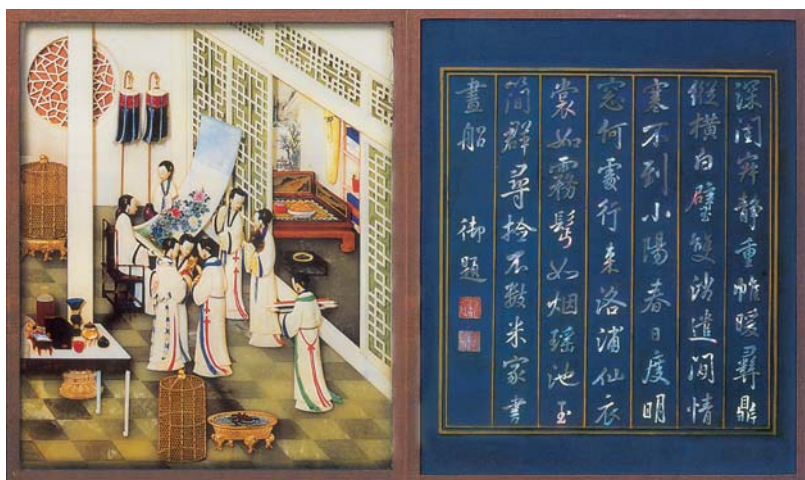 深閨寂靜重帷暖彝鼎
縱橫白璧雙消遣閒情
寒不到小陽春日度明
窓何處行來洛浦仙衣
裳如霧鬢如烟瑤池玉
簡群尋撿不數米家書
畫船 御題